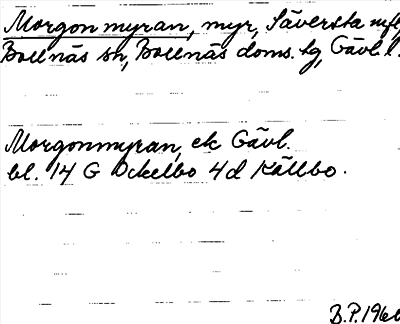 Morgonmyran, myr, Säversta mfl,
Bollnäs sn, Bollnäs doms. tg, Gävl. l.
Morgonmyran, ek Gävl.
bl. 14 G Ockelbo 4d Källbo.
B.P. 196